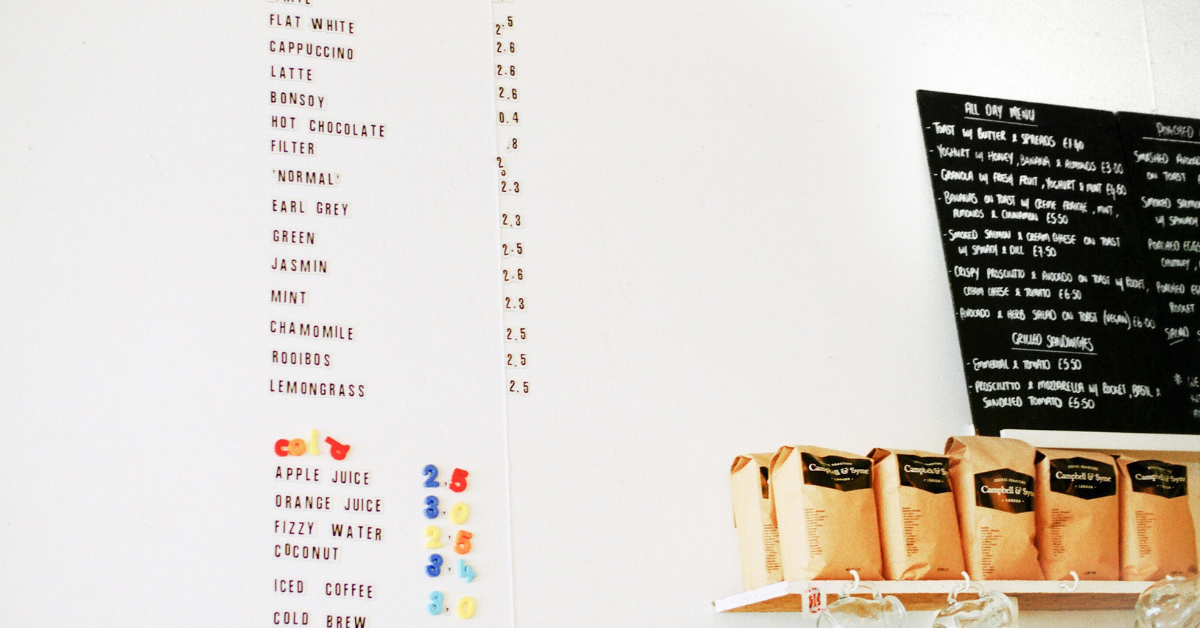 FLAT WHITE 2.5
CAPPUCCINO 2.6
LATTE 2.6
BONSOY 2.6
HOT CHOCOLATE 0.4
FILTER .8
2
"NORMAL" 2.3
EARL GREY 2.3
GREEN 2.5
JASMIN 2.6
MINT 2.3
CHAMOMILE 2,5
ROOIBOS 2,5
LEMONGRASS 2.5
cold
APPLE JUICE 2.5
ORANGE JUICE 3.0
FIZZY WATER 2.5
COCONUT 3.4
ICED COFFEE 3.0
COLD BREW
ALL DAY MENU
- TOAST W/ BUTTER & SPREADS £1.60
- YOGHURT W/ HONEY, BANANA & ALMONDS £3.00
- GRANOLA W/ FRESH FRUIT, YOGHURT & MINT £4.50
- BANANAS ON TOAST W/ CREME FRAICHE, MINT,
ALMONDS & CINNAMON £5.50
- SMOKED SALMON & CREAM CHEESE ON TOAST
W/ SPINACH & DILL £7.50
- CRISPY PROSCIUTTO & AVOCADO ON TOAST W/ ROCKET,
CREAM CHEESE & TOMATO £6.50
- AVOCADO & HERB SALAD ON TOAST (VEGAN) £6.00
GRILLED SANDWICHES
- EMMENTAL & TOMATO £5.50
- PROSCIUTTO & MOZZARELLA W/ ROCKET, BASIL &
SUNDRIED TOMATO £5.50
POACHED
SMASHED
ON TOAST
SMOKED
W/ SPINACH
POACHED EGGS
CHUTNEY,
POACHED
ROCKET
SALAD
Campbell & Syme
LONDON
Campbell & Syme
Campbell & Sy
LONDON
Campbell & Syme
LONDON
Campbell & Syme